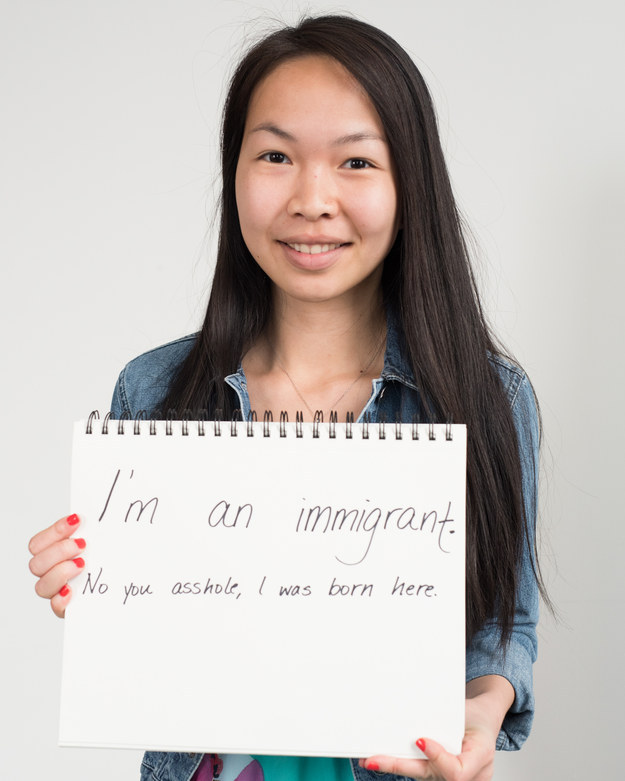 I'm an immigrant.
No you asshole, I was born here.